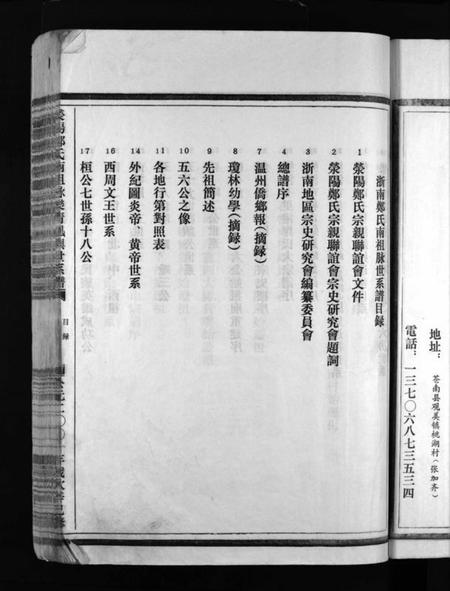 地址：苍南县观美镇桃湖村（张加齐）
電話：一三七〇六八七三五三四
浙南鄭氏南祖脉世系譜目録
1 滎陽鄭氏宗親聯誼會文件
2 滎陽鄭氏宗親聯誼會宗史研究會題詞
3 浙南地區宗史研究會編纂委員會
4 總譜序
7 温州僑鄉報（摘録）
8 瓊林幼學（摘録）
9 先祖簡述
10 五六公之像
11 各地行第對照表
14 外紀圖炎帝、黄帝世系
16 西周文王世系
17 桓公七世孫十八公
目録